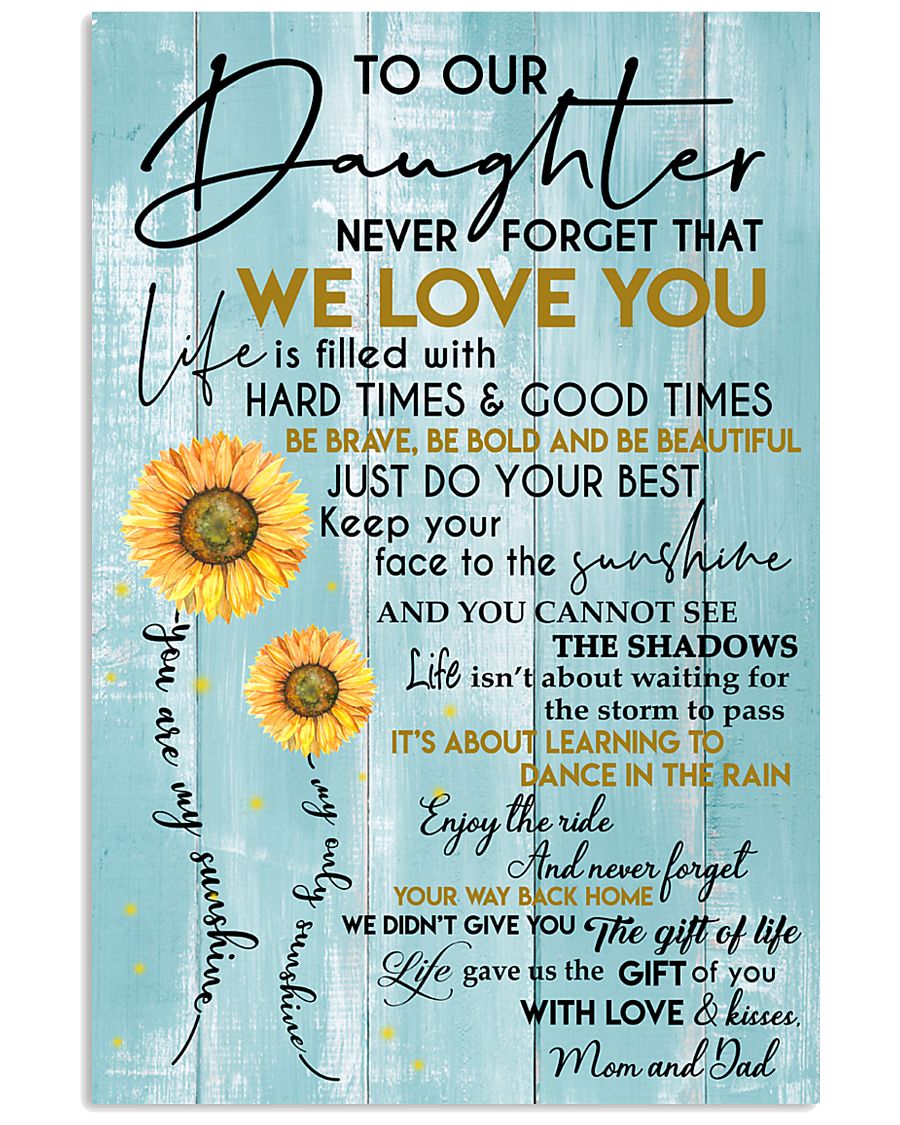 TO OUR
Daughter
NEVER FORGET THAT
WE LOVE YOU
Life is filled with
HARD TIMES & GOOD TIMES
BE BRAVE, BE BOLD AND BE BEAUTIFUL
JUST DO YOUR BEST
Keep your
face to the sunshine
AND YOU CANNOT SEE
THE SHADOWS
Life isn't about waiting for
the storm to pass
IT'S ABOUT LEARNING TO
DANCE IN THE RAIN
Enjoy the ride
And never forget
YOUR WAY BACK HOME
WE DIDN'T GIVE YOU The gift of life
Life gave us the GIFT of you
WITH LOVE & kisses,
Mom and Dad
you are my sunshine
my only sunshine